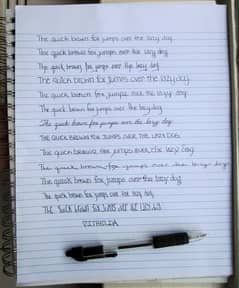 The quick brown fox jumps over the lazy dog.
The quick brown fox jumps over the lazy dog
The quick brown fox jumps over the lazy dog
The quick brown fox jumps over the lazy dog.
The quick brown fox jumps over the lazy dog
The quick brown fox jumps over the lazy dog
The quick brown fox jumps over the lazy dog
THE QUICK BROWN FOX JUMPS OVER THE LAZY DOG
The quick brown fox jumps over the lazy dog
The quick brown fox jumps over the lazy dog
The quick brown fox jumps over the lazy dog
The quick brown fox jumps over the lazy dog
The quick brown fox jumps over the lazy dog